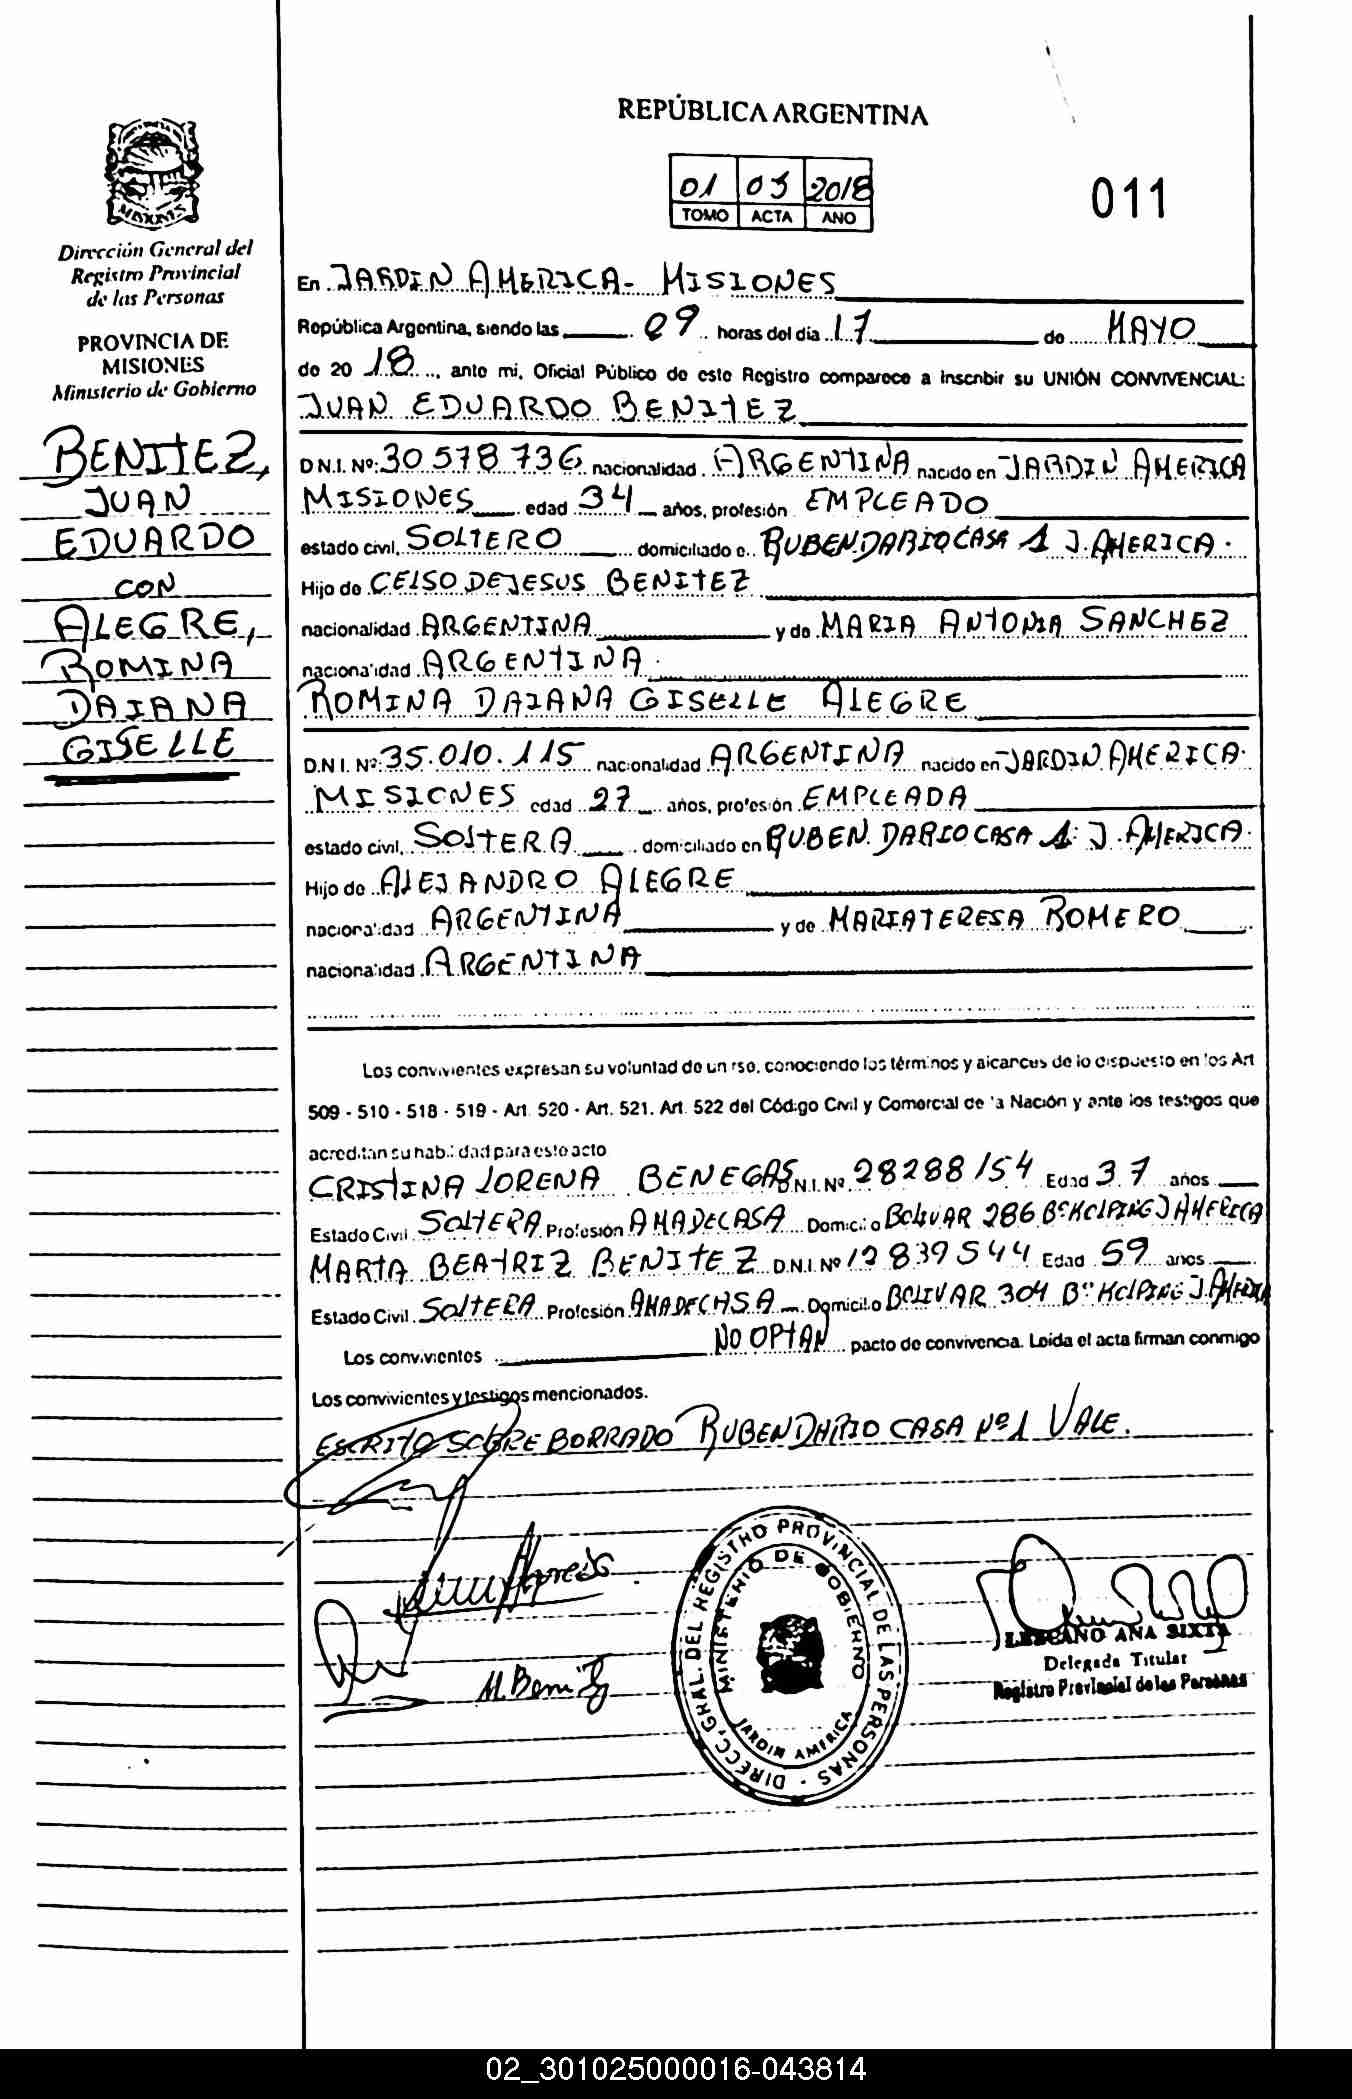 REPÚBLICA ARGENTINA
01 03 2018
TOMO ACTA AÑO
011
MISIONES
Dirección General del
Registro Provincial
de las Personas
PROVINCIA DE
MISIONES
Ministerio de Gobierno
BENITEZ,
JUAN
EDUARDO
CON
ALEGRE,
ROMINA
DAIANA
GISELLE
En JARDIN AMERICA - MISIONES
República Argentina, siendo las 09 horas del día 17 de MAYO
de 20 18, ante mi, Oficial Público de este Registro comparece a inscribir su UNIÓN CONVIVENCIAL:
JUAN EDUARDO BENITEZ
D.N.I. Nº: 30 578 736 nacionalidad ARGENTINA nacido en JARDIN AMERICA
MISIONES edad 34 años, profesión EMPLEADO
estado civil, SOLTERO domiciliado e. RUBEN DARIO CASA 1 J. AMERICA.
Hijo de CELSO DE JESUS BENITEZ
nacionalidad ARGENTINA y de MARIA ANTONIA SANCHEZ
nacionalidad ARGENTINA.
ROMINA DAIANA GISELLE ALEGRE
D.N.I. Nº: 35.010.115 nacionalidad ARGENTINA nacido en JARDIN AMERICA.
MISIONES edad 27 años, profesión EMPLEADA
estado civil, SOLTERA domiciliado en RUBEN DARIO CASA 1. J. AMERICA.
Hijo de ALEJANDRO ALEGRE
nacionalidad ARGENTINA y de MARIA TERESA ROMERO
nacionalidad ARGENTINA
Los convivientes expresan su voluntad de unirse, conociendo los términos y alcances de lo dispuesto en los Art
509 - 510 - 518 - 519 - Art. 520 - Art. 521. Art. 522 del Código Civil y Comercial de la Nación y ante los testigos que
acreditan su habilidad para este acto
CRISTINA LORENA BENEGAS D.N.I. Nº 28288154 Edad 37 años
Estado Civil SOLTERA Profesión AMA DE CASA Domicilio BOLIVAR 286 Bº KOLPING J AMERICA
MARTA BEATRIZ BENITEZ D.N.I. Nº 12 839 544 Edad 59 años
Estado Civil SOLTERA Profesión AMA DE CASA Domicilio BOLIVAR 304 Bº KOLPING J. AMERICA
Los convivientes NO OPTAN pacto de convivencia. Leída el acta firman conmigo
Los convivientes y testigos mencionados.
ESCRITO SOBRE BORRADO RUBEN DARIO CASA Nº 1 VALE.
M. Benitez
DIRECC. GRAL. DEL REGISTRO PROVINCIAL DE LAS PERSONAS
MINISTERIO DE GOBIERNO
JARDIN AMERICA
LEZCANO ANA SIXTA
Delegada Titular
Registro Provincial de las Personas
02_301025000016-043814